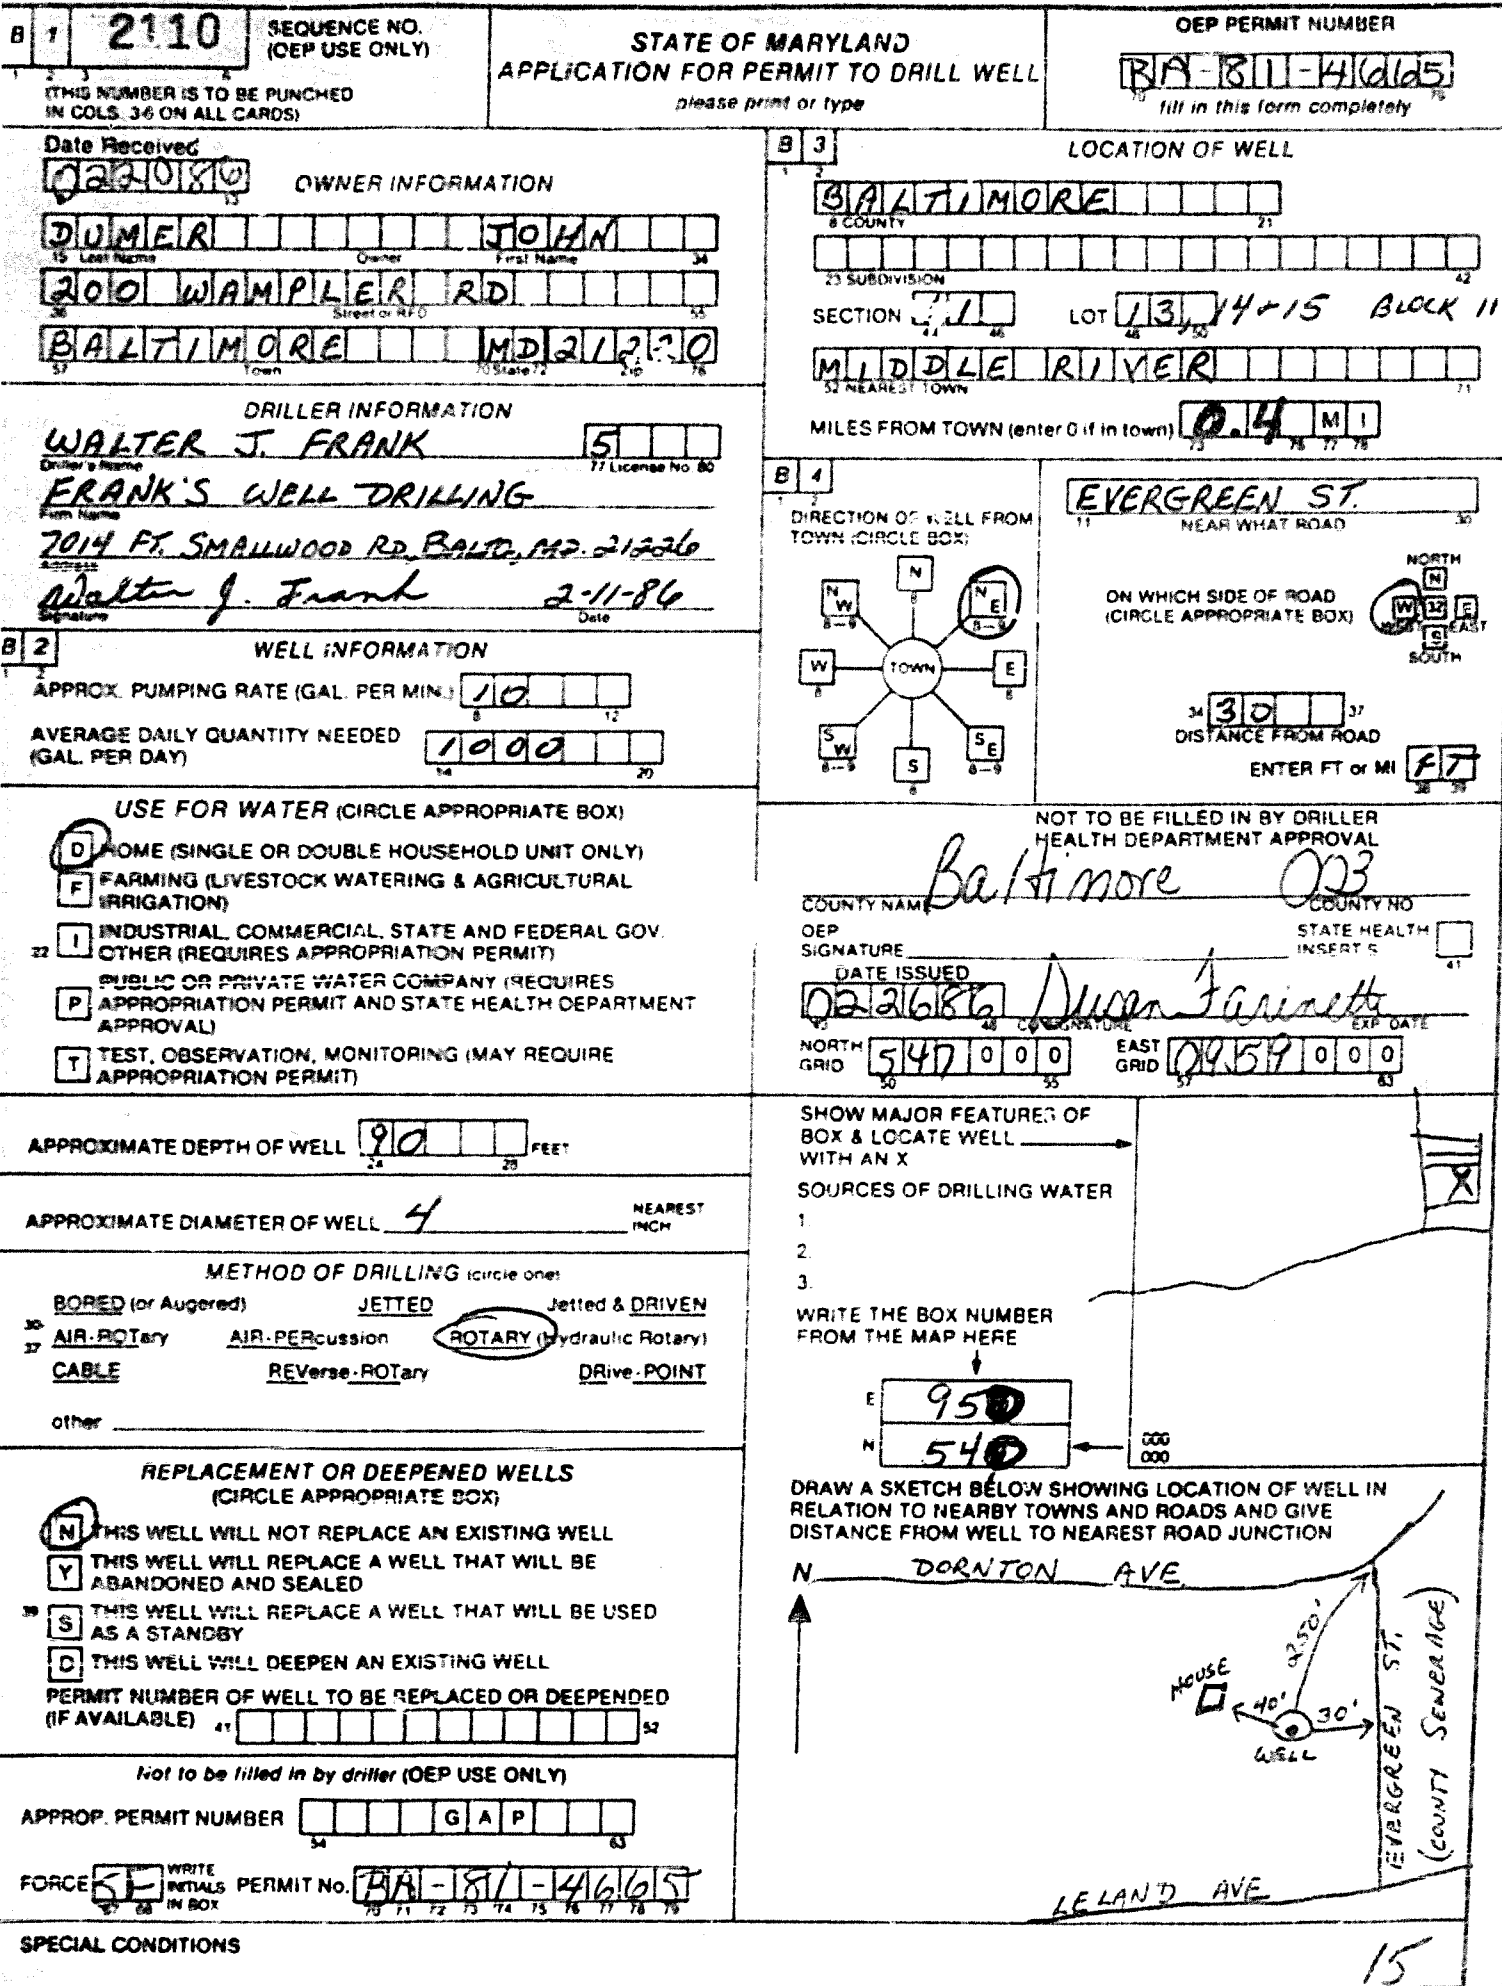 B 1 2110 SEQUENCE NO. (OEP USE ONLY)
1 2 3 6
(THIS NUMBER IS TO BE PUNCHED
IN COLS. 3-6 ON ALL CARDS)
STATE OF MARYLAND
APPLICATION FOR PERMIT TO DRILL WELL
please print or type
OEP PERMIT NUMBER
BA-81-4665
70 79
fill in this form completely
Date Received
022086
8 13
OWNER INFORMATION
DUMER JOHN
15 Last Name Owner First Name 34
200 WAMPLER RD
36 Street or RFD 55
BALTIMORE MD 21220
57 Town 70 State 72 Zip 76
DRILLER INFORMATION
WALTER J. FRANK 5
Driller's Name 77 License No. 80
FRANK'S WELL DRILLING
Firm Name
7014 FT. SMALLWOOD RD, BALTO, MD. 21226
Address
Walter J. Frank 2-11-86
Signature Date
B 2 WELL INFORMATION
1 2
APPROX. PUMPING RATE (GAL. PER MIN.) 10
8 12
AVERAGE DAILY QUANTITY NEEDED
(GAL. PER DAY) 1000
14 20
USE FOR WATER (CIRCLE APPROPRIATE BOX)
D HOME (SINGLE OR DOUBLE HOUSEHOLD UNIT ONLY)
F FARMING (LIVESTOCK WATERING & AGRICULTURAL
IRRIGATION)
22 I INDUSTRIAL, COMMERCIAL, STATE AND FEDERAL GOV.
OTHER (REQUIRES APPROPRIATION PERMIT)
P PUBLIC OR PRIVATE WATER COMPANY (REQUIRES
APPROPRIATION PERMIT AND STATE HEALTH DEPARTMENT
APPROVAL)
T TEST, OBSERVATION, MONITORING (MAY REQUIRE
APPROPRIATION PERMIT)
APPROXIMATE DEPTH OF WELL 90 FEET
24 28
APPROXIMATE DIAMETER OF WELL 4 NEAREST
INCH
METHOD OF DRILLING (circle one)
BORED (or Augered) JETTED Jetted & DRIVEN
30-
37 AIR-ROTary AIR-PERcussion ROTARY (Hydraulic Rotary)
CABLE REVerse-ROTary DRive-POINT
other
REPLACEMENT OR DEEPENED WELLS
(CIRCLE APPROPRIATE BOX)
N THIS WELL WILL NOT REPLACE AN EXISTING WELL
Y THIS WELL WILL REPLACE A WELL THAT WILL BE
ABANDONED AND SEALED
39 S THIS WELL WILL REPLACE A WELL THAT WILL BE USED
AS A STANDBY
D THIS WELL WILL DEEPEN AN EXISTING WELL
PERMIT NUMBER OF WELL TO BE REPLACED OR DEEPENED
(IF AVAILABLE) 41 52
Not to be filled in by driller (OEP USE ONLY)
APPROP. PERMIT NUMBER G A P
54 63
FORCE SF WRITE INITIALS IN BOX PERMIT No. BA-81-4665
67 68 70 71 72 73 74 75 76 77 78 79
SPECIAL CONDITIONS
B 3 LOCATION OF WELL
1 2
BALTIMORE
8 COUNTY 21
23 SUBDIVISION 42
SECTION 1 LOT 13, 14+15 BLOCK 11
44 46 48 50
MIDDLE RIVER
52 NEAREST TOWN 71
MILES FROM TOWN (enter 0 if in town) 0.4 M I
73 76 77 78
B 4
1 2
DIRECTION OF WELL FROM
TOWN (CIRCLE BOX)
N
8
NW NE
8-9 8-9
W TOWN E
8 8
SW SE
8-9 8-9
S
8
EVERGREEN ST.
11 NEAR WHAT ROAD 30
ON WHICH SIDE OF ROAD
(CIRCLE APPROPRIATE BOX)
NORTH
N
W 32 E
WEST EAST
S
SOUTH
34 30 37
DISTANCE FROM ROAD
ENTER FT or MI FT
38 39
NOT TO BE FILLED IN BY DRILLER
HEALTH DEPARTMENT APPROVAL
Baltimore 003
COUNTY NAME COUNTY NO
OEP
SIGNATURE
STATE HEALTH
INSERT S
41
DATE ISSUED
022686 Susan Farinetti
43 48 CO SIGNATURE EXP DATE
NORTH
GRID 547 0 0 0
50 55
EAST
GRID 0959 0 0 0
57 63
SHOW MAJOR FEATURES OF
BOX & LOCATE WELL
WITH AN X
X
SOURCES OF DRILLING WATER
1.
2.
3.
WRITE THE BOX NUMBER
FROM THE MAP HERE
E 950
N 540
000
000
DRAW A SKETCH BELOW SHOWING LOCATION OF WELL IN
RELATION TO NEARBY TOWNS AND ROADS AND GIVE
DISTANCE FROM WELL TO NEAREST ROAD JUNCTION
N DORNTON AVE
HOUSE
40'
30'
WELL
EVERGREEN ST.
(COUNTY SEWERAGE)
LELAND AVE
15